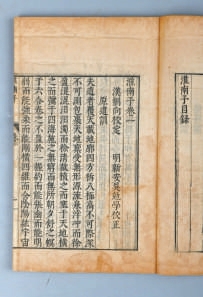 淮南子目錄
淮南子卷一
漢劉向校定 明新安吳勉學校正
原道訓
夫道者覆天載地廓四方柝八極高不可際深
不可測包裹天地稟受無形源流泉浡沖而徐
盈混混汩汩濁而徐清故植之而塞于天地橫
之而彌于四海施之無窮而無所朝夕舒之幎
于六合卷之不盈于一握約而能張幽而能明
弱而能強柔而能剛橫四維而含陰陽紘宇宙